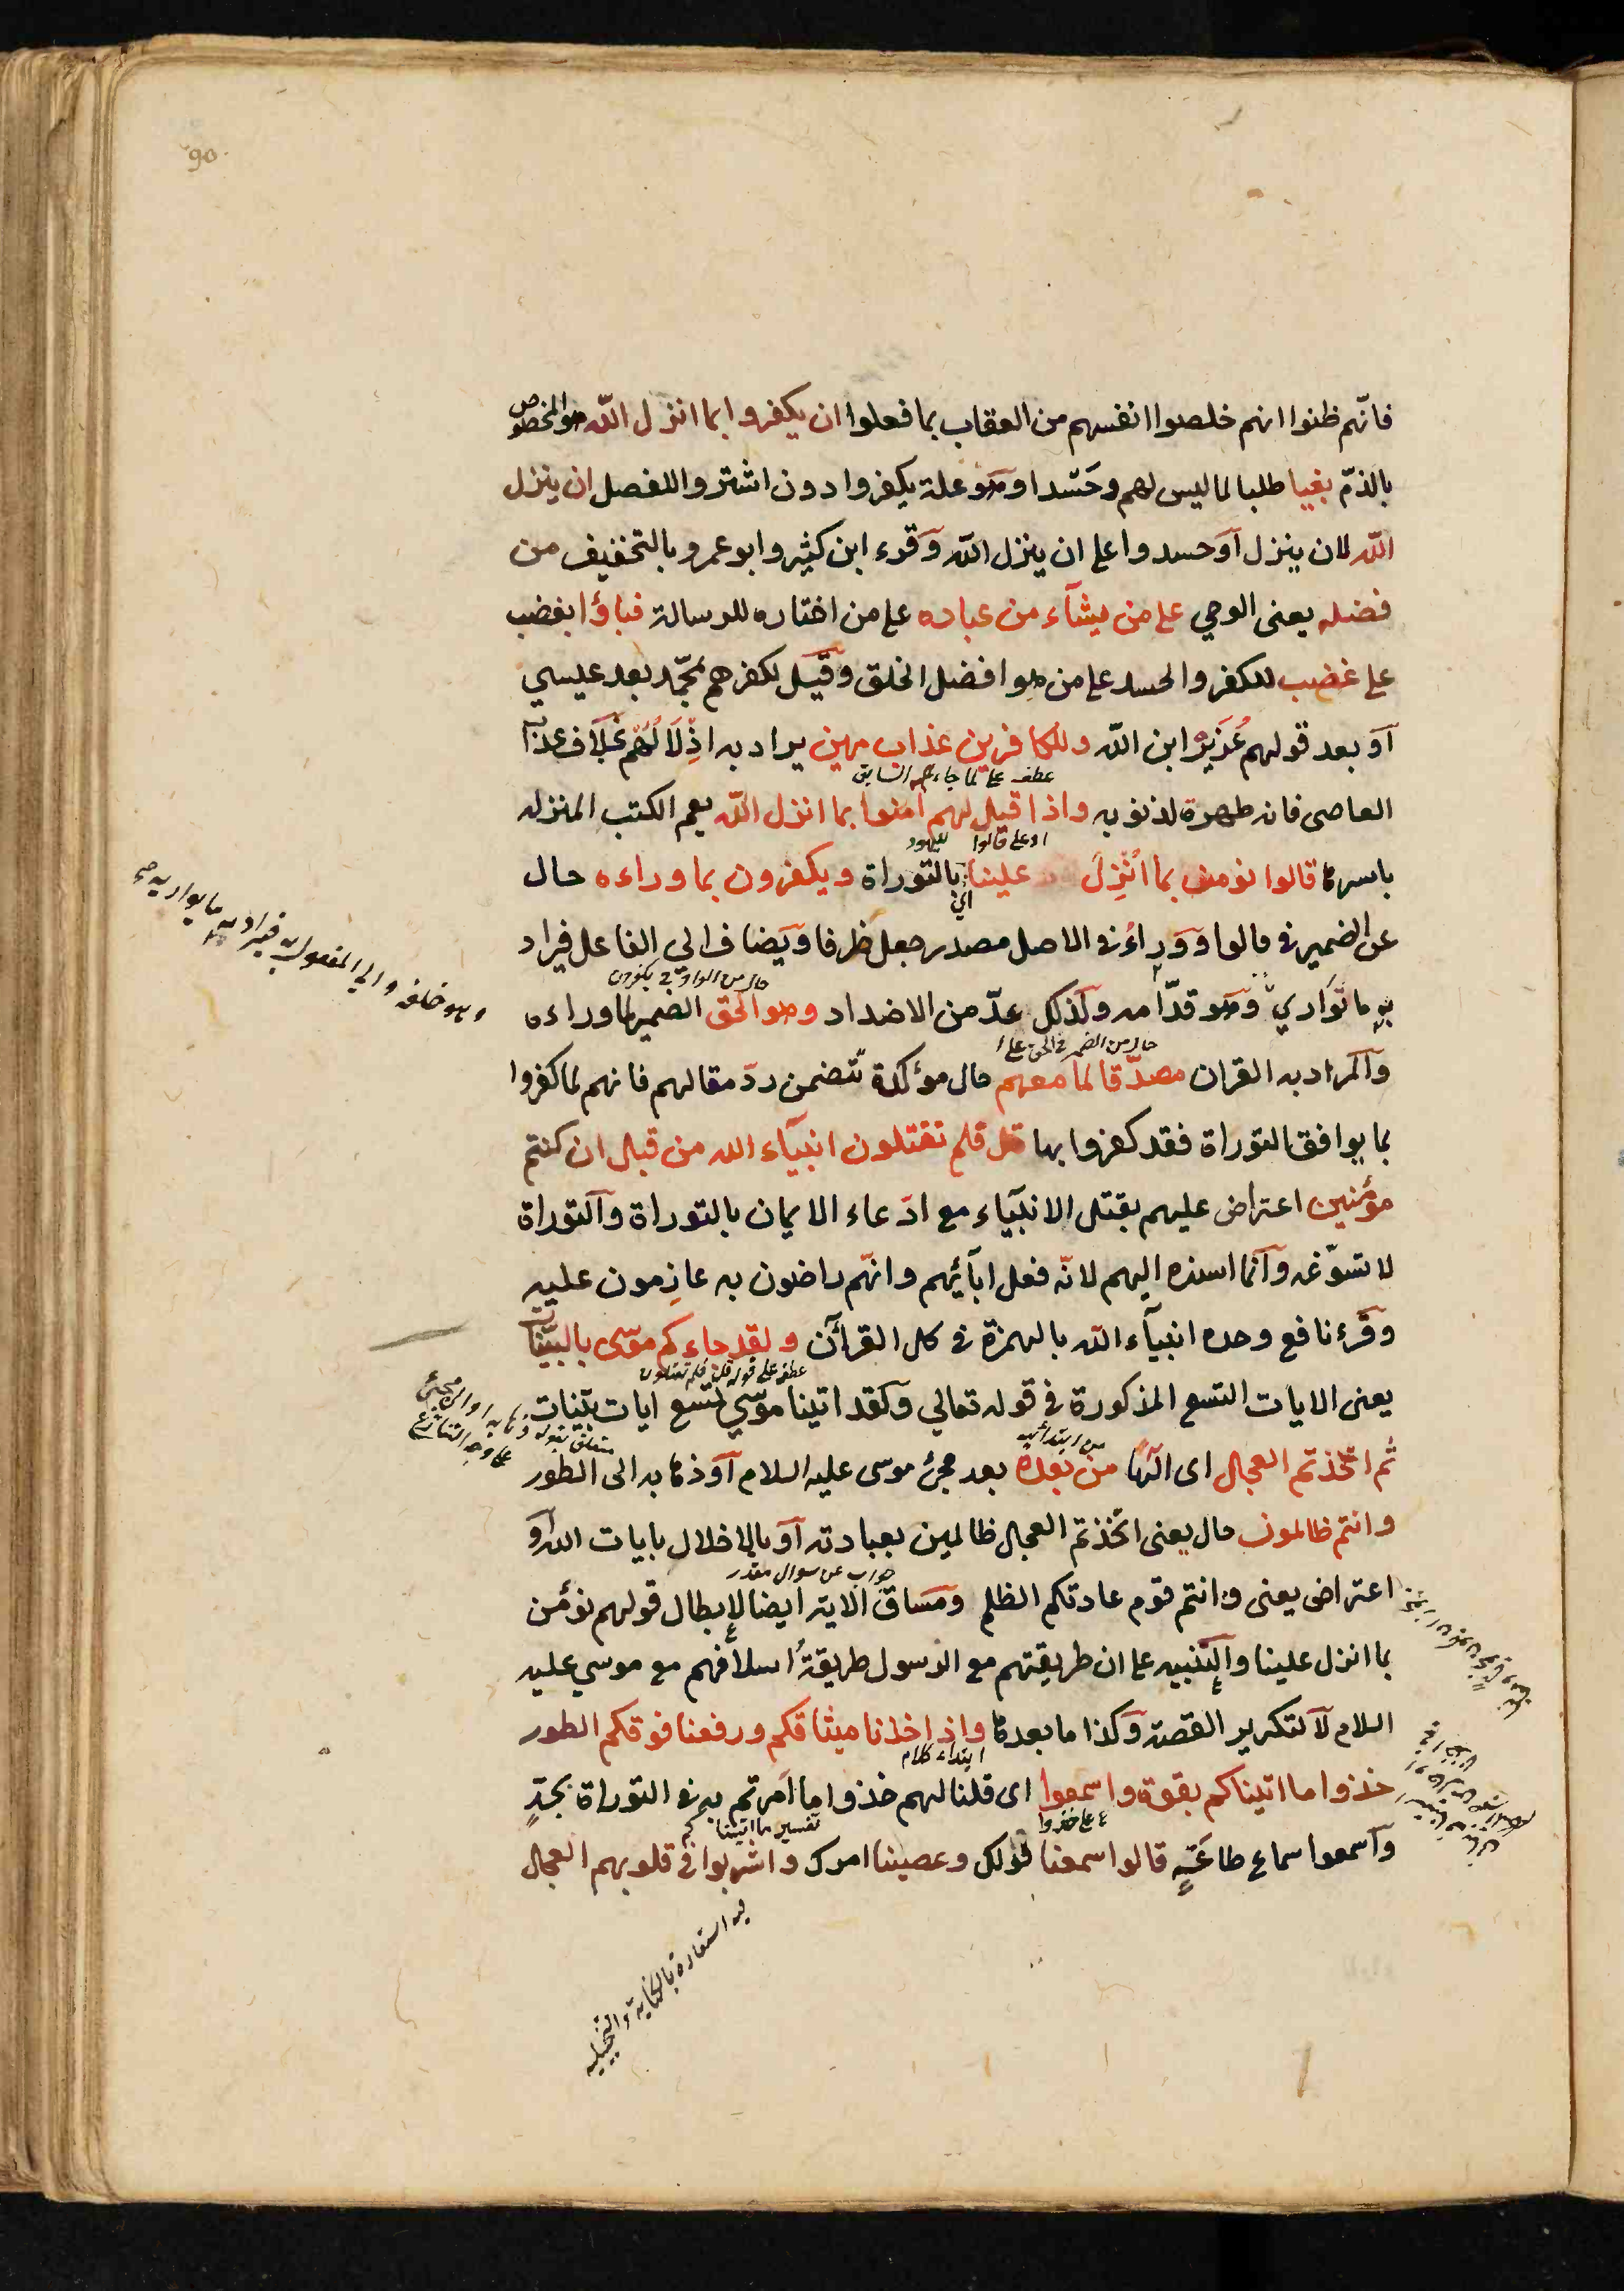 90
فانّهم ظنوا انهم خلصوا انفسهم من العقاب بما فعلوا ان يكفروا بما انزل اللّه هو المخصوص
بالذمّ بغيا طلبا لما ليس لهم وحَسَدا وهو علة يكفروا دون اشتروا للفصل ان ينزل
اللّه لان ينزل آو حسدوا على ان ينزل اللّه وقرء ابن كثير وابو عمرو بالتخفيف من
فضله يعنى الوحي على من يشآء من عباده على من اختاره للرسالة فباؤا بغضب
على غضب للكفر والحسد على من هو افضل الخلق وقيل لكفرهم بمحمّد بعد عيسي
آو بعد قولهم عُزَيرٌ ابن اللّه وللكافرين عذاب مهين يراد به اذلالهم بخلاف عذاب
عطف على لما جاءهم السابق
العاصى فانه طهرة لذنوبه واذا قيل لهم امنوا بما انزل اللّه يعم الكتب المنزله
او على قالوا لليهود
باسرها قالوا نومن بما اُنْزِلَ علينا بالتوراة ويكفرون بما وراءه حال
اى
عن الضمير في قالوا ووراء في الاصل مصدر جعل ظرفا ويضاف الى الفاعل فيراد
حال من الواو في يكفرون
به ما يتوارى به وهو قدّامه ولذلك عدّ من الاضداد وهو الحق الضمير لما وراءه
وهو خلفه والي المفعول به فيراد به ما يواريه صح
حال من الضمير في الحق على
والمراد به القران مصدّقا لما معهم حال مؤكدة تتضمن ردّ مقالهم فانهم لما كفروا
بما يوافق التوراة فقد كفروا بها قل فلم تقتلون انبيآء الله من قبل ان كنتم
مؤمنين اعتراض عليهم بقتل الانبيآء مع ادّعاء الايمان بالتوراة والتوراة
لا تسوّغه وآنما اسنده اليهم لانّه فعل ابآئهم وانهّم راضون به عازمون عليه
وقرء نافع وحده انبيآء اللّه بالهمزة في كل القرآن ولقد جاءكم موسى بالبيّنات
عطف على قوله قل فلم تقتلون
يعنى الايات التسع المذكورة في قوله تعالي ولقد اتينا موسي تسع ايات بيّنات
متعلق بقوله وذهابه او الى مجئ
على وجه التنازع
من ابتدائيه
ثم اتخذتم العجل اى الهًا من بعده بعد مجئ موسى عليه السلام آو ذهابه الى الطور
وانتم ظالمون حال يعنى اتخذتم العجل ظالمين بعبادته آو بالاخلال بايات اللّه آو
جواب عن سوال مقدر
اعتراض يعنى وانتم قوم عادتكم الظلم ومَسَاق الاية ايضا لإبطال قولهم نؤمن
بما انزل علينا والتنبيه على ان طريقتهم مع الرسول طريقةُ اسلافهم مع موسي عليه
السلام لا لتكرير القصة وكذا ما بعدها واذ اخذنا ميثاقكم ورفعنا فوقكم الطور
ابتداء كلام
خذوا ما اتيناكم بقوة واسمعوا اى قلنا لهم خذوا ما اُمرتم به في التوراة بجدّ
ع على خذوا
تفسير ما اتينا كم
وآسمعوا سماع طاعَةٍ قالوا سمعنا قولك وعصينا امرك واشربوا في قلوبهم العجل
فيه استعارة بالكناية والتخييلية